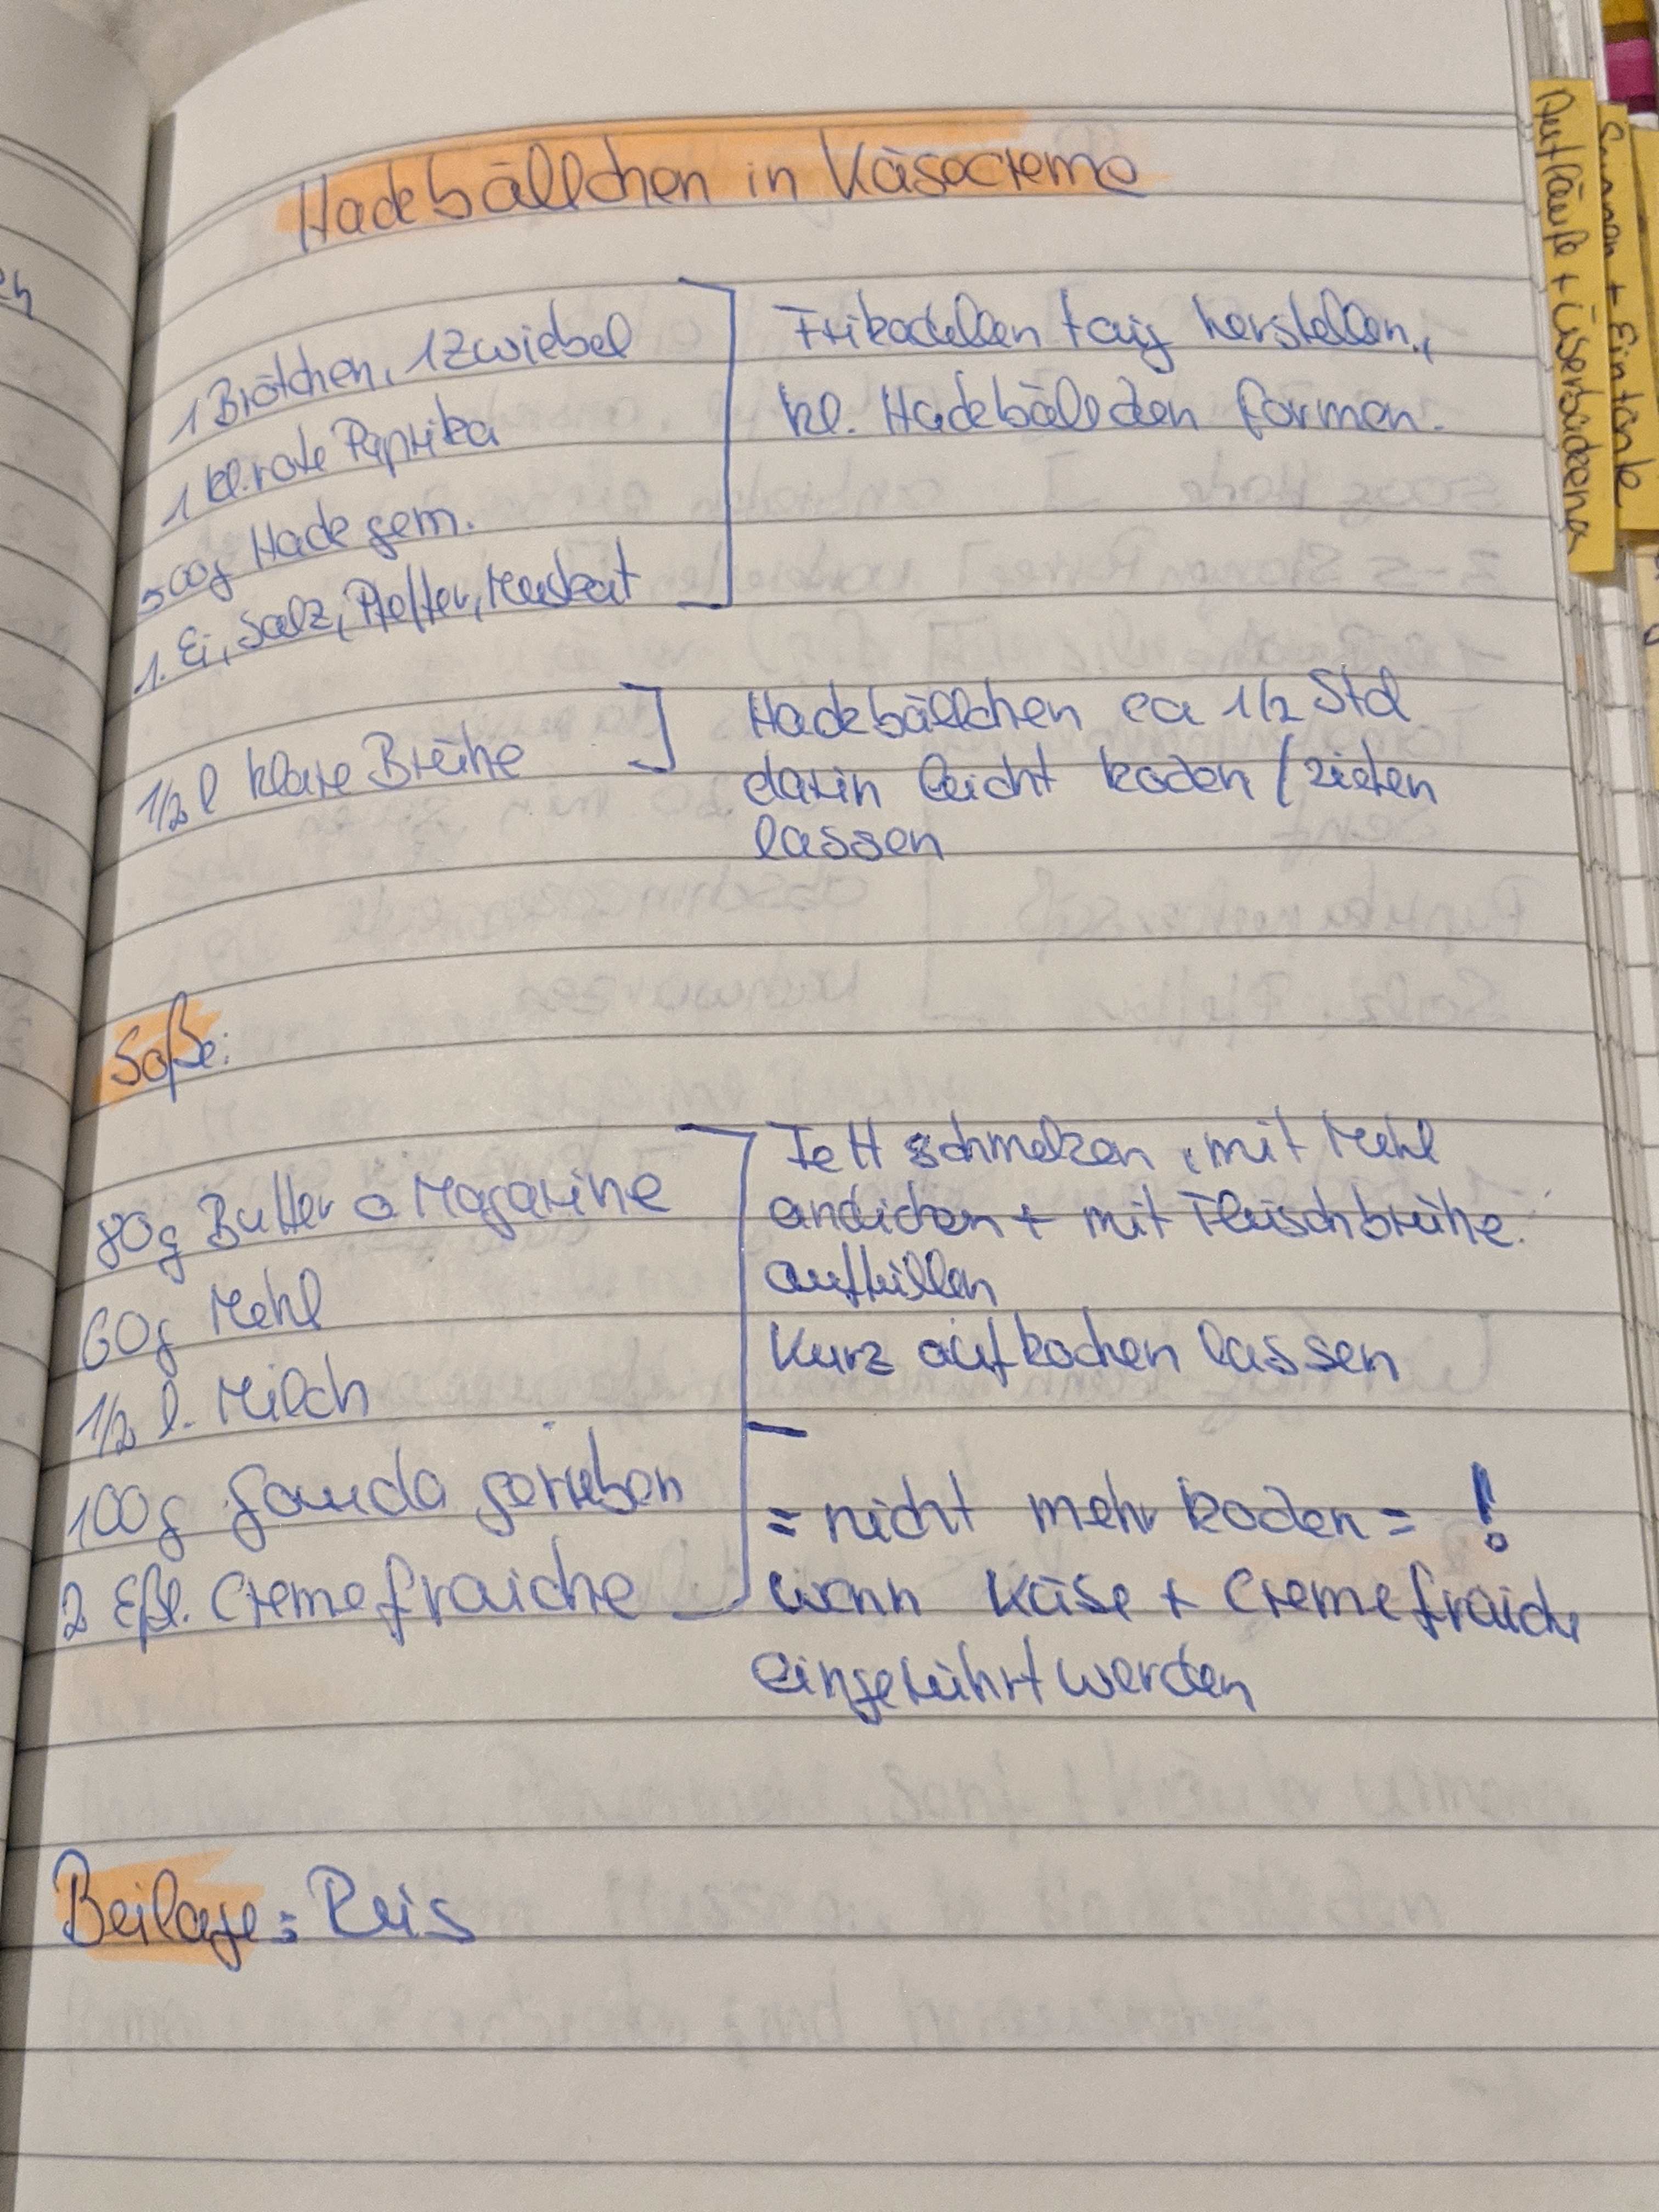 Hackbällchen in Käsecreme
1 Brötchen, 1 Zwiebel
1 kl. rote Paprika
500g Hack gem.
1. Ei, Salz, Pfeffer, Muskat
Frikadellen taig herstellen,
kl. Hackbällchen formen.
1/2 l klare Brühe
Hackbällchen ca 1/2 Std
darin leicht kochen / ziehen
lassen
Soße:
80g Butter o Magarine
60g Mehl
1/2 l. Milch
100g Gouda gerieben
2 Eßl. Cremefraiche
Fett schmelzen, mit Mehl
andicken + mit Fleischbrühe
auffüllen
Kurz aufkochen lassen
= nicht mehr kochen = !
wenn Käse + Cremefraiche
eingerührt werden
Beilage: Reis
Aufläufe + Überbackenes
Suppen + Eintöpfe